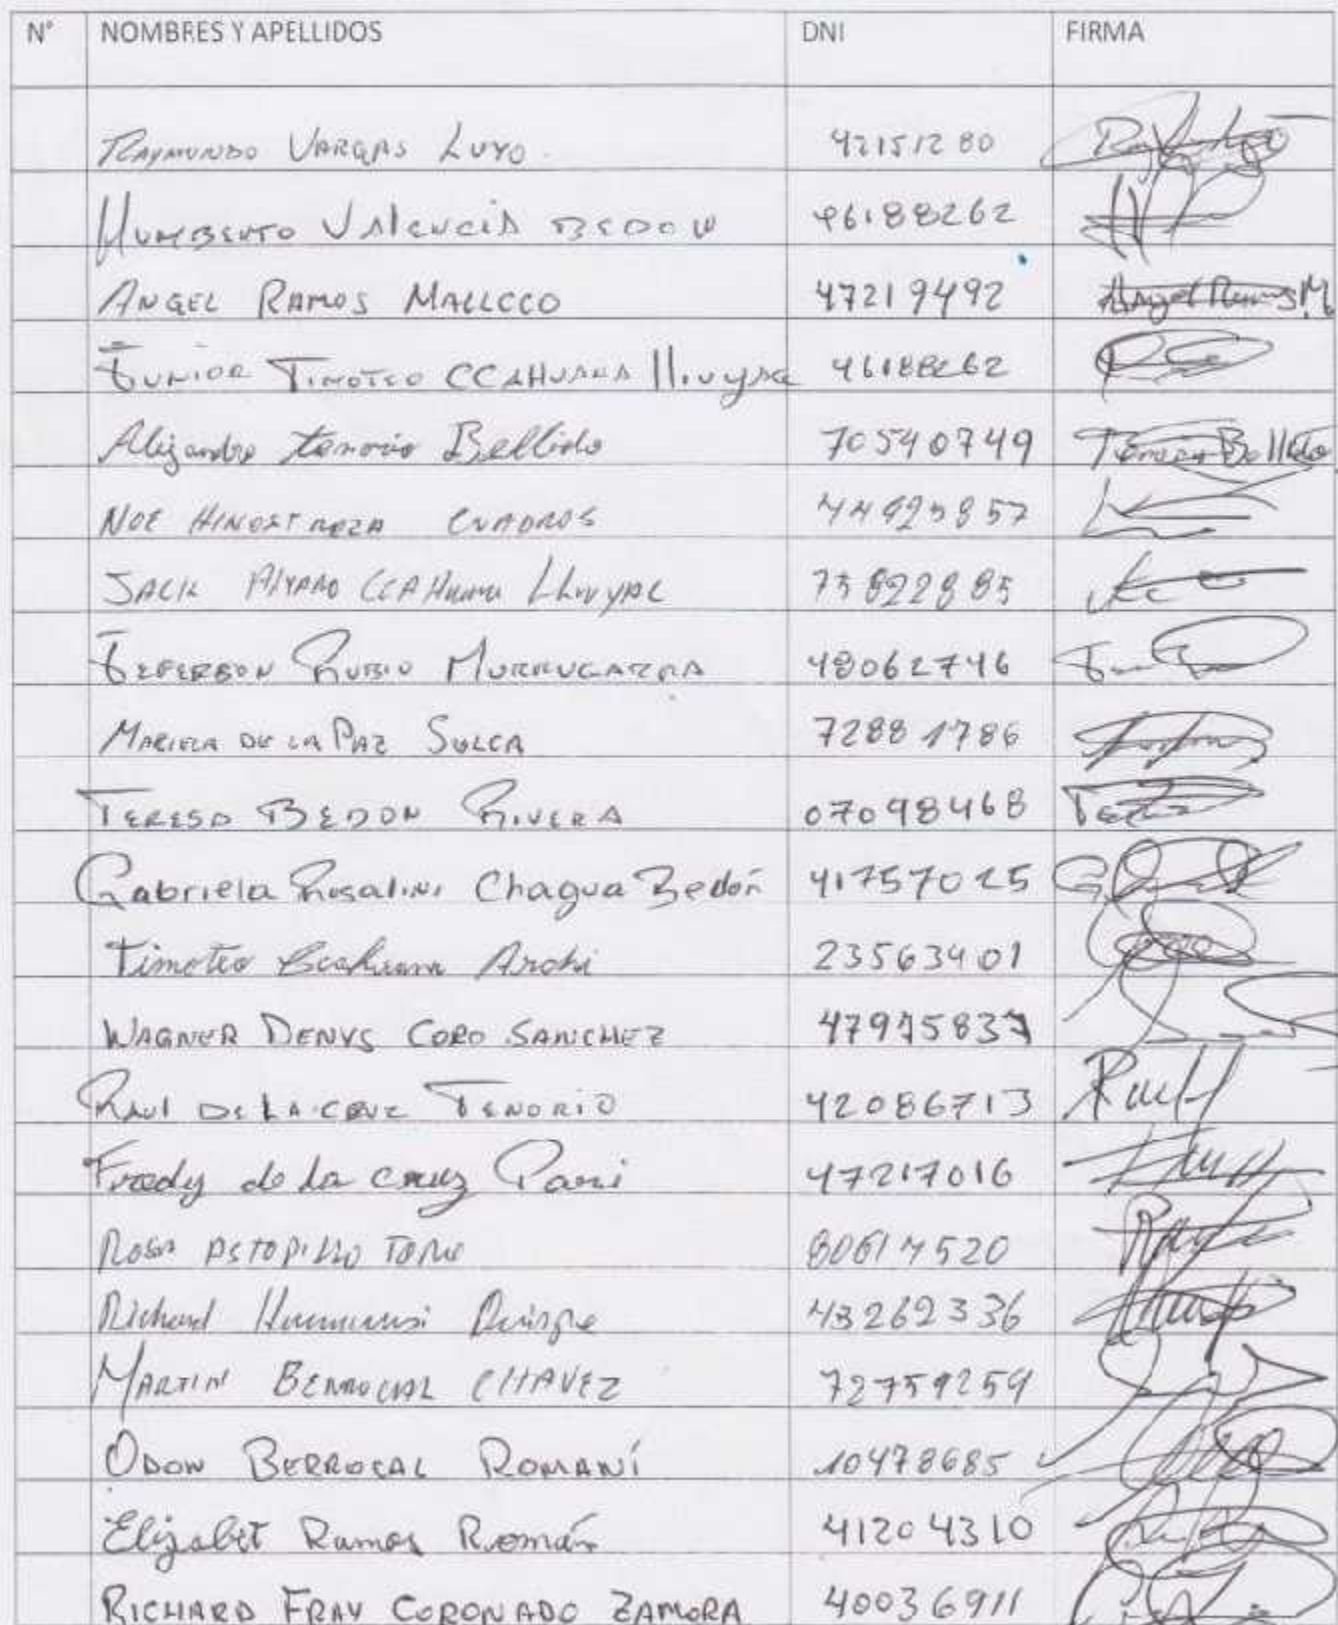 N° NOMBRES Y APELLIDOS DNI FIRMA
RAYMUNDO VARGAS LUYO. 42151280
HUMBERTO VALENCIA BEDON 46188262
ANGEL RAMOS MALLCCO 47219492 Angel Ramos M
JUNIOR TIMOTEO CCAHUANA LLIUYAC 46188262
Alejandro tenorio Bellido 70540749 Tenorio Bellido
NOE HINOSTROZA CUADROS 44925857
JACK ALVARO CCAHUANA LLIUYAC 75822885
JEFERSON RUBIO MURRUGARRA 48062746
MARIELA DE LA PAZ SULCA 72881786
TERESA BEDON RIVERA 07098468
Gabriela Rosalini Chagua Bedón 41757025
Timoteo Ccahuana Archi 23563401
WAGNER DENYS CORO SANCHEZ 47975837
RAUL DE LA CRUZ TENORIO 42086713 Raul
Fredy de la cruz Pari 47217016
ROSA ASTOPILLO TORO 80617520
Richard Huamani Quispe 43262336
MARTIN BERROCAL CHAVEZ 72759259
ODON BERROCAL ROMANÍ 10478685
Elizabet Ramos Román 41204310
RICHARD FRAY CORONADO ZAMORA 40036911